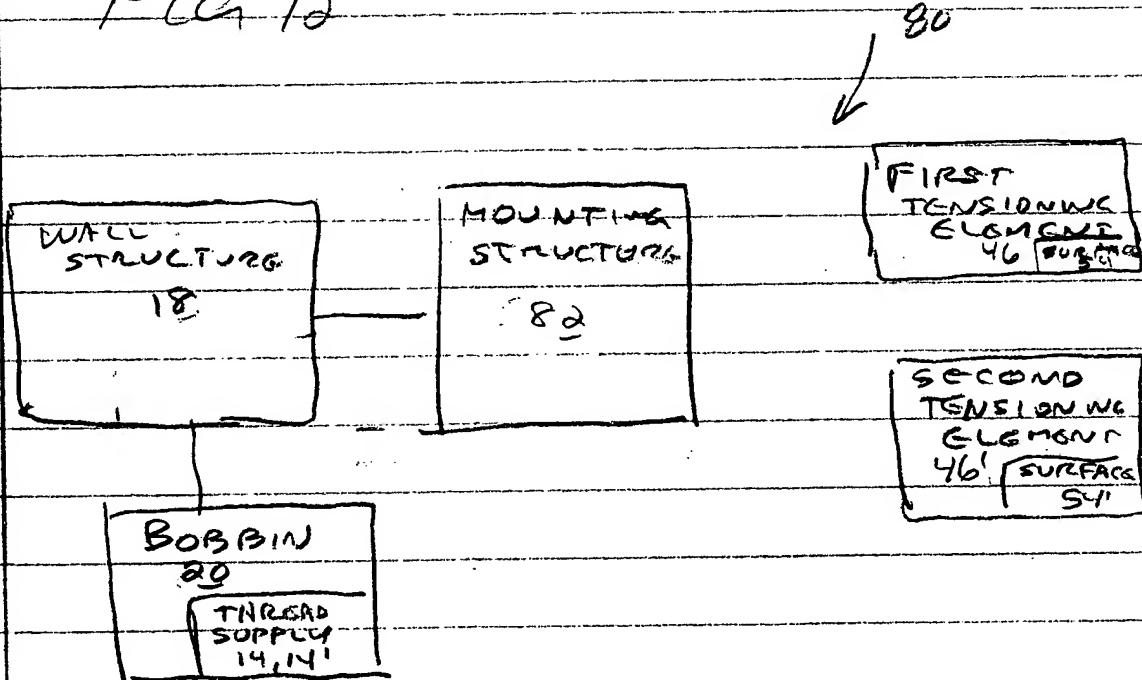 FIG 12
80
WALL
STRUCTURE
18
MOUNTING
STRUCTURE
82
FIRST
TENSIONING
ELEMENT
46 SURFACE
54
SECOND
TENSIONING
ELEMENT
46' SURFACE
54'
BOBBIN
20
THREAD
SUPPLY
14, 14'